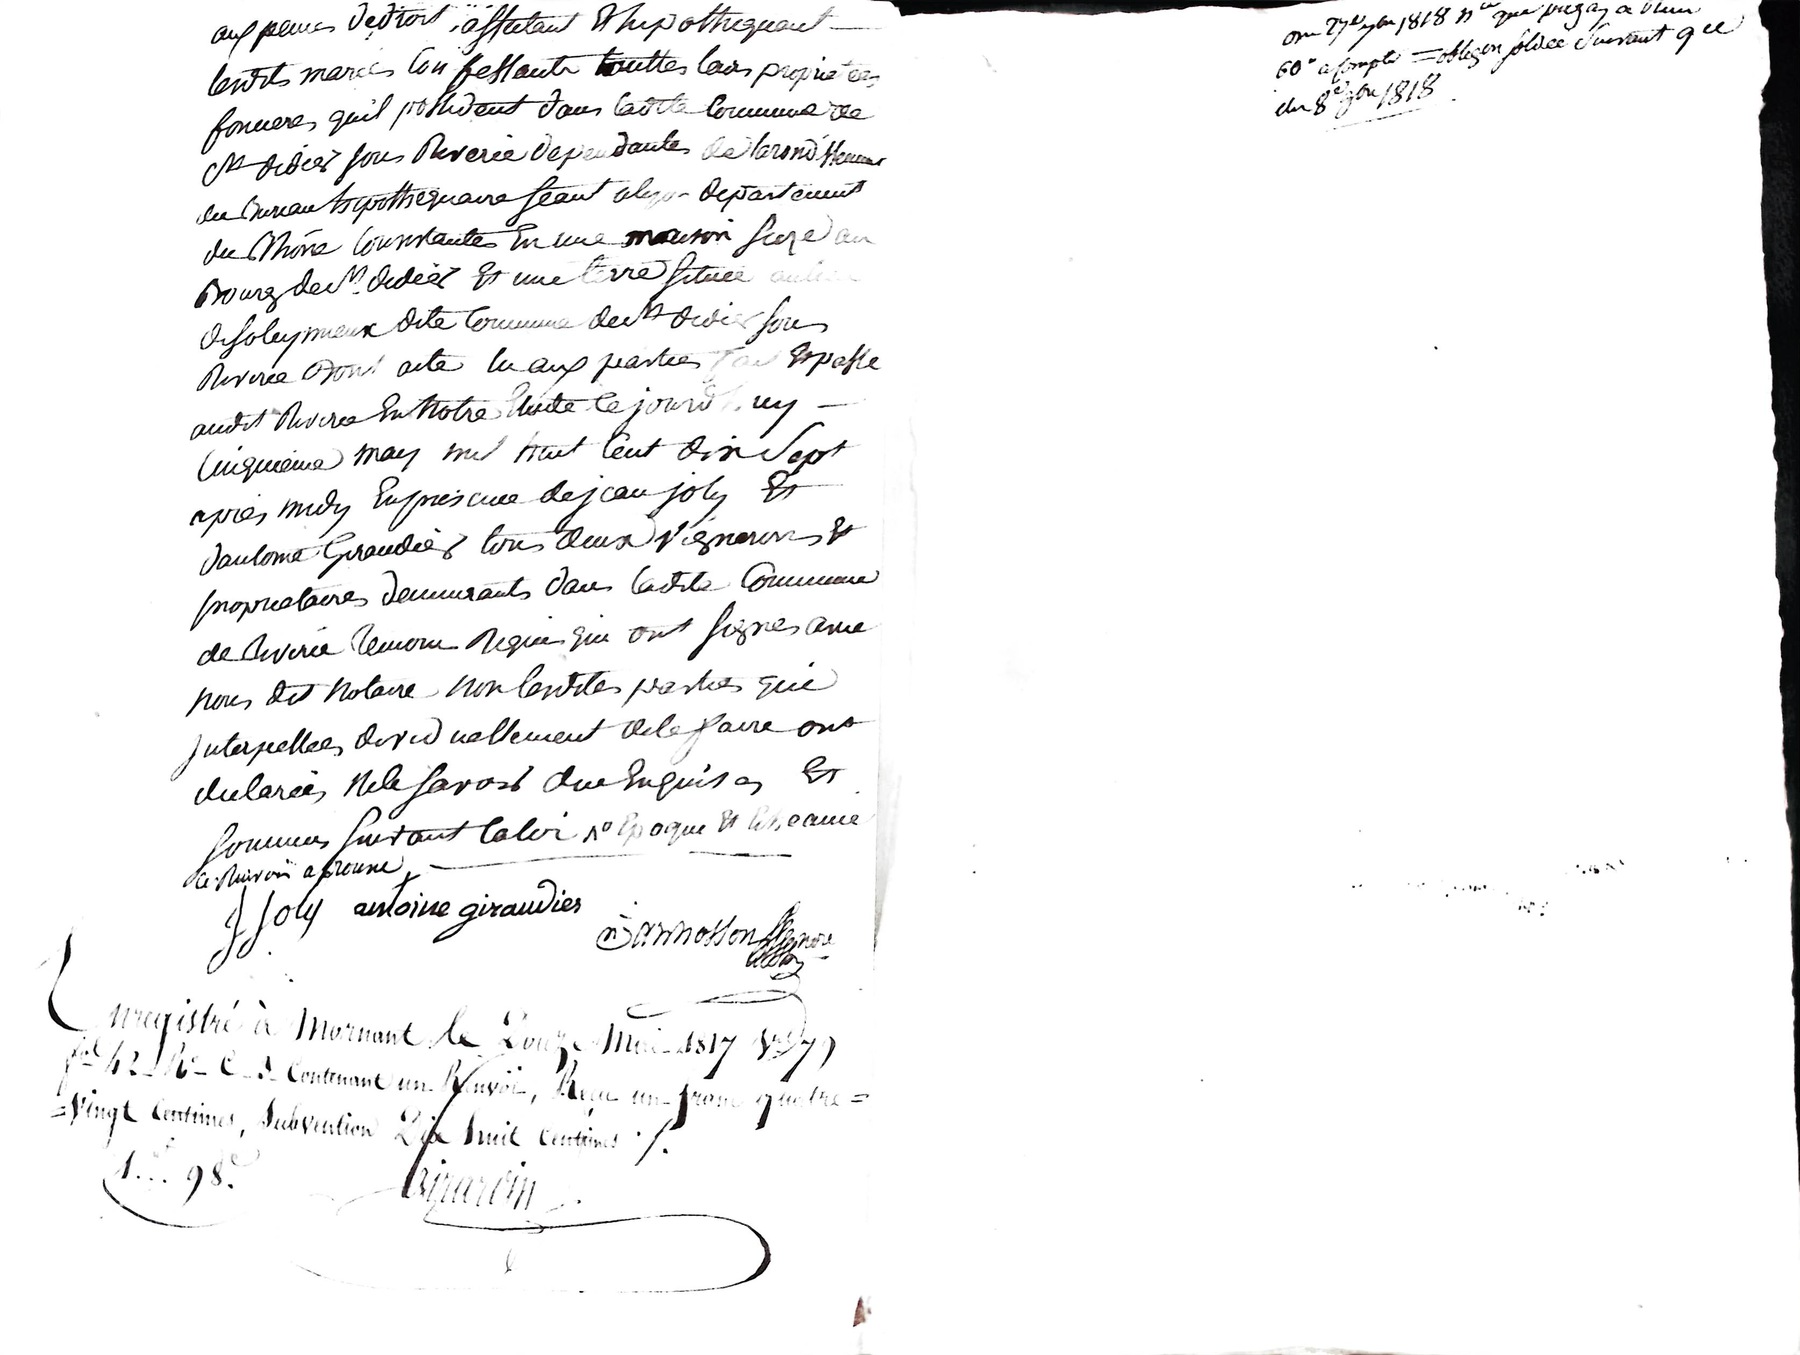 aux peines de droit affectant Et hypothequant —
lesdits mariés Confessants touttes leurs proprietées
foncieres quil possedent dans ladite Commune de
St didier sous Riverie dependantes de larondissement
du Bureau hypothequaire seant a lyon departement
du Rhône Consistantes En une maison size au
Bourg de St. didier Et une terre située au lieu
de soleymieux dite Commune de St didier sous
Riverie Dont acte lu aux parties fait Et passé
audit Riverie En Notre Etude ce jourd'huy —
Cinquieme may mil huit Cent dix Sept
apres midy En presence de jean joly Et
d'antoine Giraudier tous deux Vignerons Et
proprietaires demeurants dans ladite Commune
de Riverie temoins Requis qui ont signes avec
nous dit Notaire Non lesdites parties qui
Interpellees dividuellement de le faire ont
declarées Ne le savoir due Enquises Et
sommes suivant la loi
ce Renvoi aprouvé
J Joly antoine giraudier
Enregistré à Mornant le Douze Mai 1817
fol 42 Ro C. Contenant un Renvoi, Reçu un franc quatre=
=Vingt Centimes, Subvention Dix huit centimes ./.
1.f. 98.c
Girardin
60" a compte = obligon soldée Suivant qce
du 8e 1818